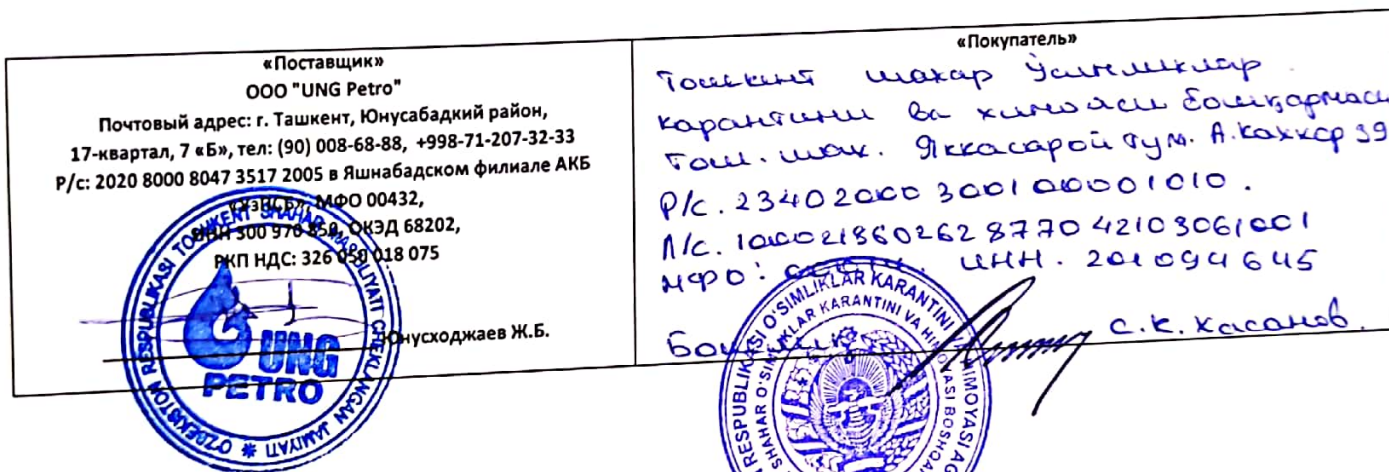 «Поставщик»
ООО "UNG Petro"
Почтовый адрес: г. Ташкент, Юнусабадкий район,
17-квартал, 7 «Б», тел: (90) 008-68-88, +998-71-207-32-33
Р/с: 2020 8000 8047 3517 2005 в Яшнабадском филиале АКБ
МФО 00432,
300 970 850, ОКЭД 68202,
РКП НДС: 326 050 018 075
Юнусходжаев Ж.Б.
O'ZBEKISTON RESPUBLIKASI TOSHKENT SHAHAR MAS'ULIYATI CHEKLANGAN JAMIYATI
UNG
PETRO
«Покупатель»
Тошкент шахар Ўсимликлар
карантини ва химояси бошқармаси
Тош. шах. Яккасарой тум. А.Каххар 39
Р/с. 23402000300100001010.
Л/с. 100021860262877042103061001
МФО: ИНН. 201094645
С.К. Хасанов.
RESPUBLIKASI O'SIMLIKLAR KARANTINI
SHAHAR O'SIMLIKLAR KARANTINI VA HIMOYASI